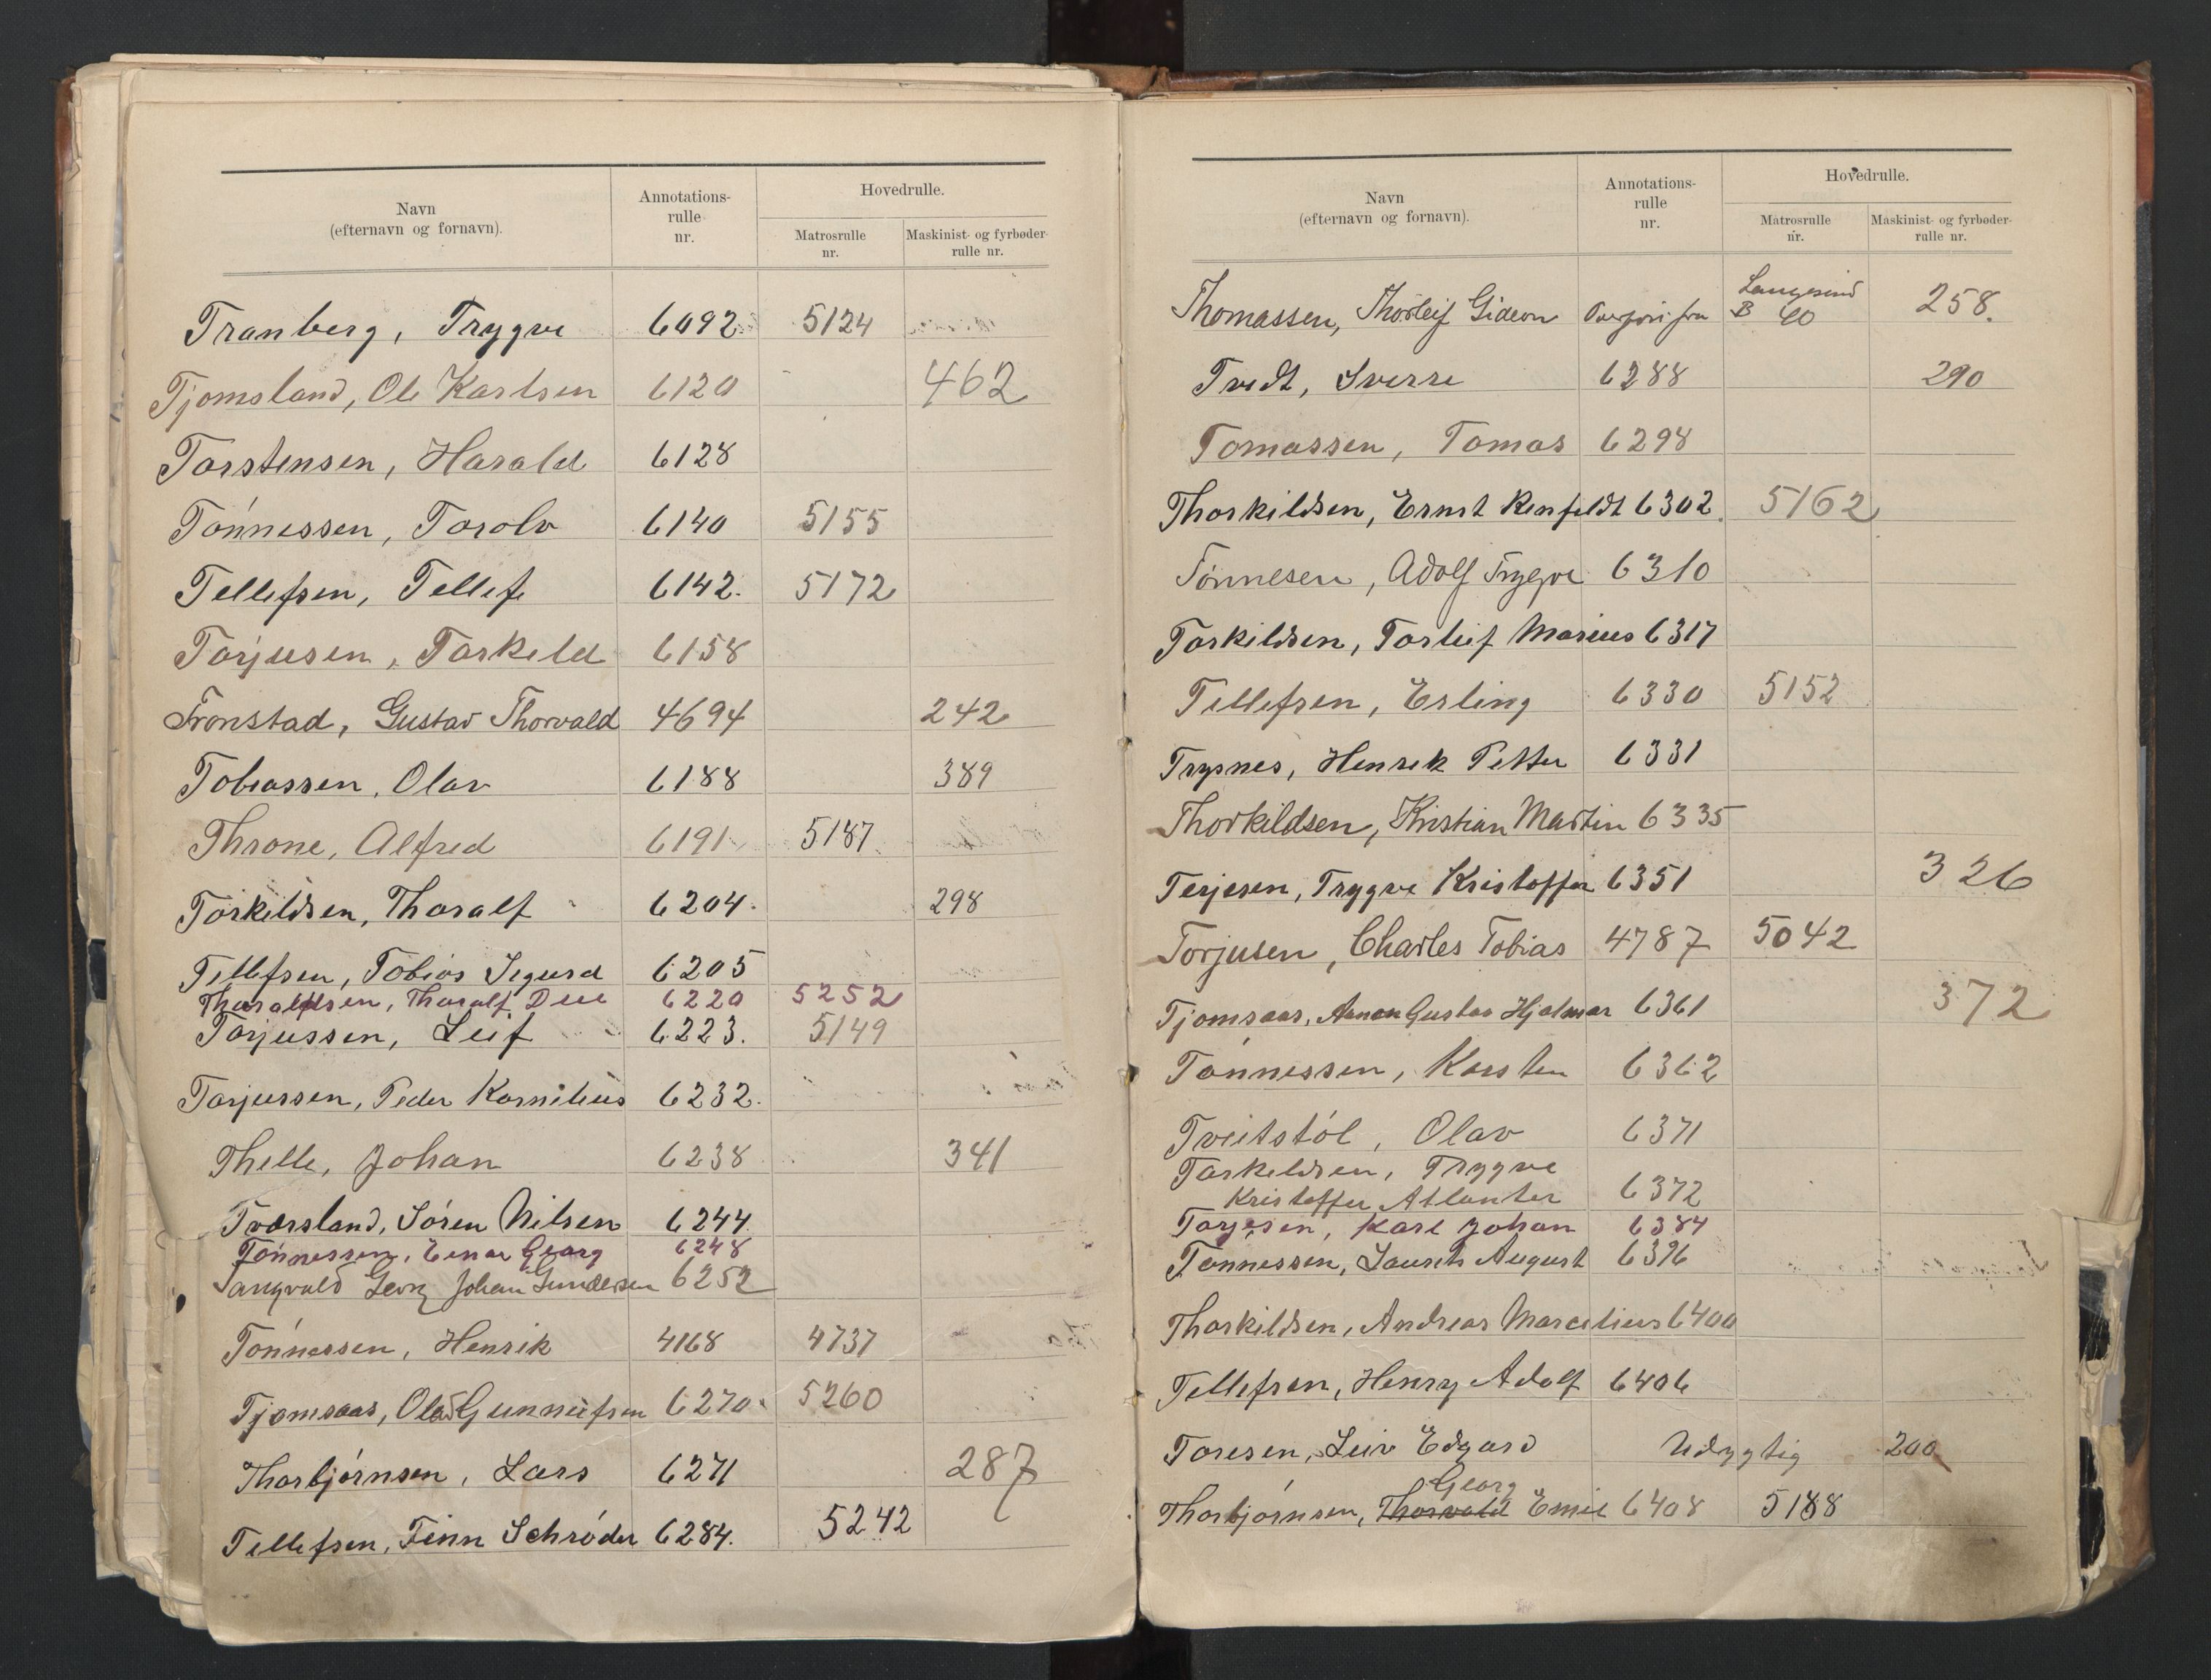 Navn
(efternavn og fornavn).
Annotations-
rulle
nr.
Hovedrulle.
Matrosrulle
nr.
Maskinist- og fyrbøder-
rulle nr.
Tranberg, Trygve 6092 5124
Tjomsland, Ole Karlsen 6120 462
Torstensen, Harald 6128
Tønnessen, Torolv 6140 5155
Tellefsen, Tellef 6142. 5172
Torjusen, Torkeld 6158
Tronstad, Gustav Thorvald 4694 242
Tobiassen, Olav 6188 389
Throne, Alfred 6191 5187
Torkildsen, Thoralf 6204. 298
Tellefsen, Tobias Sigurd 6205
Tharaldsen, Tharalf Due 6220 5252
Torjussen, Leif 6223. 5149
Torjussen, Peder Kornilius 6232.
Thelle, Johan 6238 341
Tværsland, Søren Nilsen 6244
Tønnessen, Einar Georg 6248
Tangvald Georg Johan Gundersen 6252
Tønnessen, Henrik 4168 4737
Tjomsaas, Olav Gunneufsen 6270. 5260
Thorbjørnsen, Lars 6271 287
Tellefsen, Finn Schrøder 6284. 5242
Navn
(efternavn og fornavn).
Annotations-
rulle
nr.
Hovedrulle.
Matrosrulle
nr.
Maskinist- og fyrbøder-
rulle nr.
Thomassen, Thorleif Gideon Overført fra Langesund B 60 258.
Tvedt, Sverre 6288 290
Tomassen, Tomas 6298
Thorkildsen, Ernst Renfeldt 6302. 5162
Tønnesen, Adolf Trygve 6310
Torkildsen, Torleif Marius 6317
Tellefsen, Erling 6330 5152
Trysnes, Henrik Petter 6331
Thorkildsen, Kristian Martin 6335
Terjesen, Trygve Kristoffer 6351 326
Torjusen, Charles Tobias 4787 5042
Tjomsaas, Anton Gustav Hjalmar 6361 372
Tønnessen, Karsten 6362
Tveitstøl, Olav 6371
Torkeldsen, Trygve
Kristoffer Atlanter 6372
Torjesen, Karl Johan 6384
Tønnessen, Laurits August 6396
Thorkildsen, Andreas Marcelius 6400
Tellefsen, Henry Adolf 6406
Toresen, Leiv Edgard Udygtig 200
Georg
Thorbjørnsen, Thorvald Emil 6408 5188